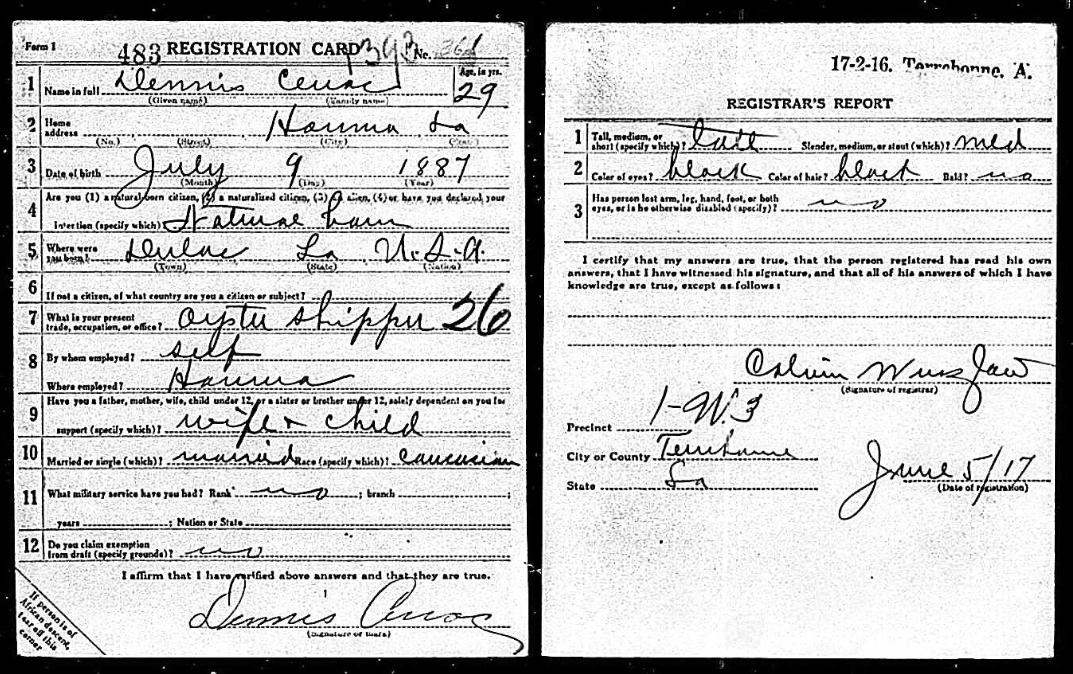 Form 1 483 REGISTRATION CARD 393 No. 368
1 Name in full Dennis Cenac Age, in yrs. 29
(Given name) (Family name)
2 Home address Houma La
(No.) (Street) (City) (State)
3 Date of birth July 9 1887
(Month) (Day) (Year)
4 Are you (1) a natural-born citizen, (2) a naturalized citizen, (3) an alien, (4) or have you declared your
intention (specify which)? Natural born
5 Where were you born? Dulac La U.S.A.
(Town) (State) (Nation)
6 If not a citizen, of what country are you a citizen or subject?
7 What is your present trade, occupation, or office? Oyster Shipper 26
8 By whom employed? self
Where employed? Houma
9 Have you a father, mother, wife, child under 12, or a sister or brother under 12, solely dependent on you for
support (specify which)? wife & child
10 Married or single (which)? married Race (specify which)? Caucasian
11 What military service have you had? Rank no ; branch ;
years ; Nation or State
12 Do you claim exemption from draft (specify grounds)? no
I affirm that I have verified above answers and that they are true.
Dennis Cenac
(Signature or mark)
If person is of
African descent,
tear off this
corner
17-2-16. Terrebonne, A.
REGISTRAR'S REPORT
1 Tall, medium, or short (specify which)? tall Slender, medium, or stout (which)? med
2 Color of eyes? black Color of hair? black Bald? no
3 Has person lost arm, leg, hand, foot, or both
eyes, or is he otherwise disabled (specify)? no
I certify that my answers are true, that the person registered has read his own
answers, that I have witnessed his signature, and that all of his answers of which I have
knowledge are true, except as follows:
Calvin
(Signature of registrar)
Precinct 1-W.3
City or County Terrebonne
State La
June 5/17
(Date of registration)